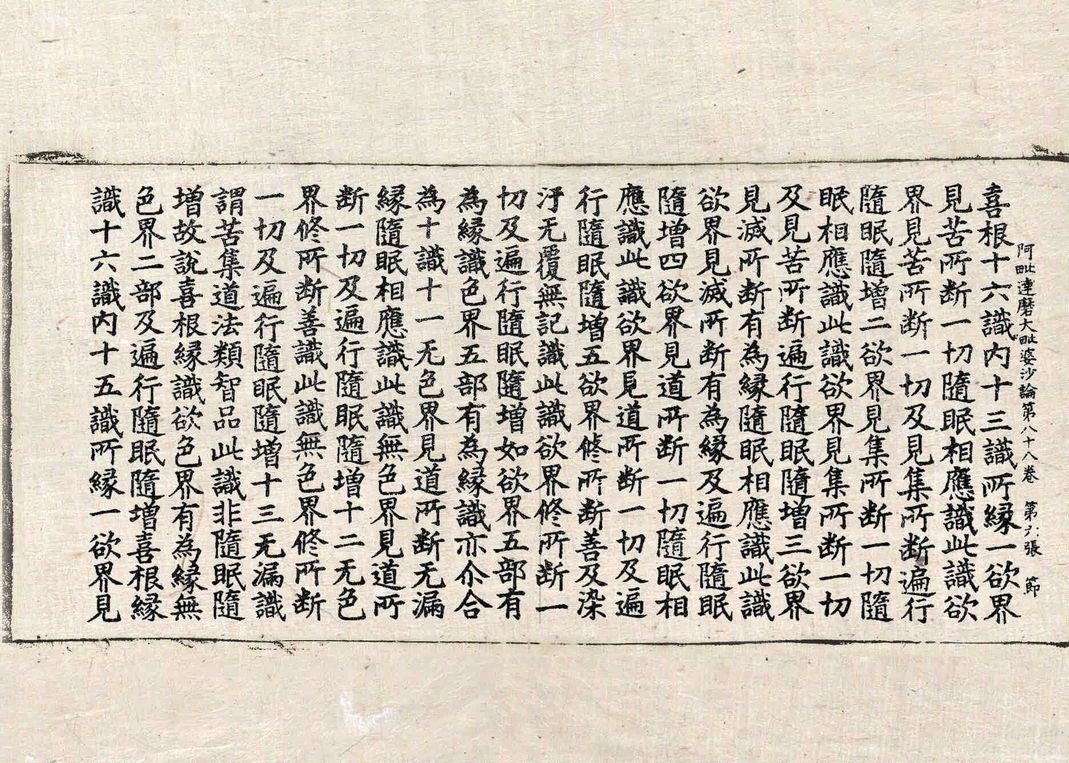 阿毗達磨大毗婆沙論第八十八卷 第六張 節
喜根十六識内十三識所縁一欲界
見苦所断一切隨眠相應識此識欲
界見苦所断一切及見集所断遍行
隨眠隨增二欲界見集所断一切隨
眠相應識此識欲界見集所断一切
及見苦所断遍行隨眠隨增三欲界
見滅所断有為縁隨眠相應識此識
欲界見滅所断有為縁及遍行隨眠
隨增四欲界見道所断一切隨眠相
應識此識欲界見道所断一切及遍
行隨眠隨增五欲界修所断善及染
汙无覆無記識此識欲界修所断一
切及遍行隨眠隨增如欲界五部有
為縁識色界五部有為縁識亦尒合
為十識十一无色界見道所断无漏
縁隨眠相應識此識無色界見道所
断一切及遍行隨眠隨增十二无色
界修所断善識此識無色界修所断
一切及遍行隨眠隨增十三无漏識
謂苦集道法類智品此識非隨眠隨
增故說喜根縁識欲色界有為縁無
色界二部及遍行隨眠隨增喜根縁
識十六識内十五識所縁一欲界見